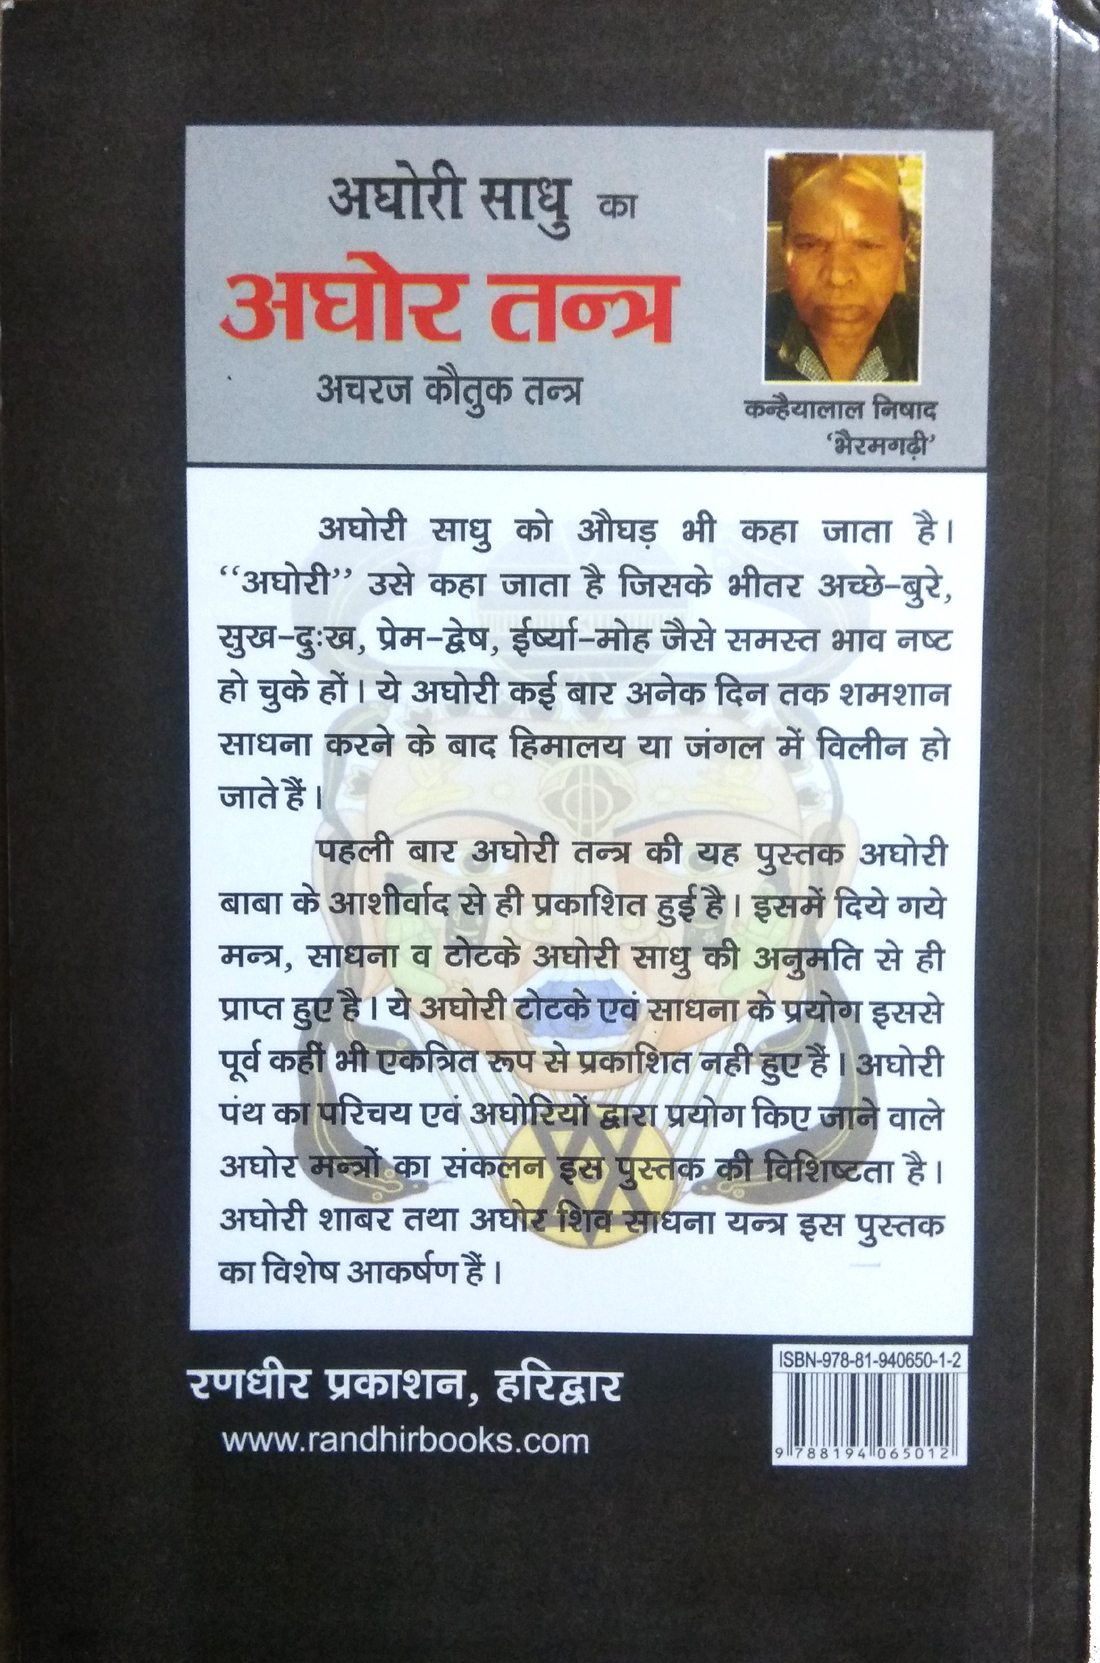 अघोरी साधु का
अघोर तन्त्र
अचरज कौतुक तन्त्र
कन्हैयालाल निषाद
‘भैरमगढ़ी’
अघोरी साधु को औघड़ भी कहा जाता है।
“अघोरी” उसे कहा जाता है जिसके भीतर अच्छे-बुरे,
सुख-दुःख, प्रेम-द्वेष, ईर्ष्या-मोह जैसे समस्त भाव नष्ट
हो चुके हों। ये अघोरी कई बार अनेक दिन तक शमशान
साधना करने के बाद हिमालय या जंगल में विलीन हो
जाते हैं।
पहली बार अघोरी तन्त्र की यह पुस्तक अघोरी
बाबा के आशीर्वाद से ही प्रकाशित हुई है। इसमें दिये गये
मन्त्र, साधना व टोटके अघोरी साधु की अनुमति से ही
प्राप्त हुए है। ये अघोरी टोटके एवं साधना के प्रयोग इससे
पूर्व कहीं भी एकत्रित रूप से प्रकाशित नही हुए हैं। अघोरी
पंथ का परिचय एवं अघोरियों द्वारा प्रयोग किए जाने वाले
अघोर मन्त्रों का संकलन इस पुस्तक की विशिष्टता है।
अघोरी शाबर तथा अघोर शिव साधना यन्त्र इस पुस्तक
का विशेष आकर्षण हैं।
रणधीर प्रकाशन, हरिद्वार
www.randhirbooks.com
ISBN-978-81-940650-1-2
9 788194 065012